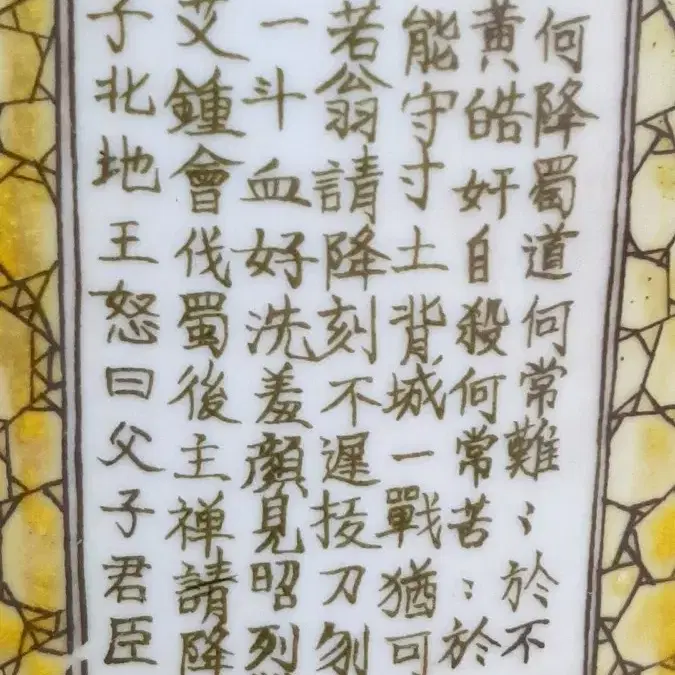 何降蜀道何常難〻於不
黃皓奸自殺何常苦〻於
能守寸土背城一戰猶可
若翁請降刻不遲拔刀刎
一斗血好洗羞顏見昭烈
艾鍾會伐蜀後主禅請降
子北地王怒曰父子君臣